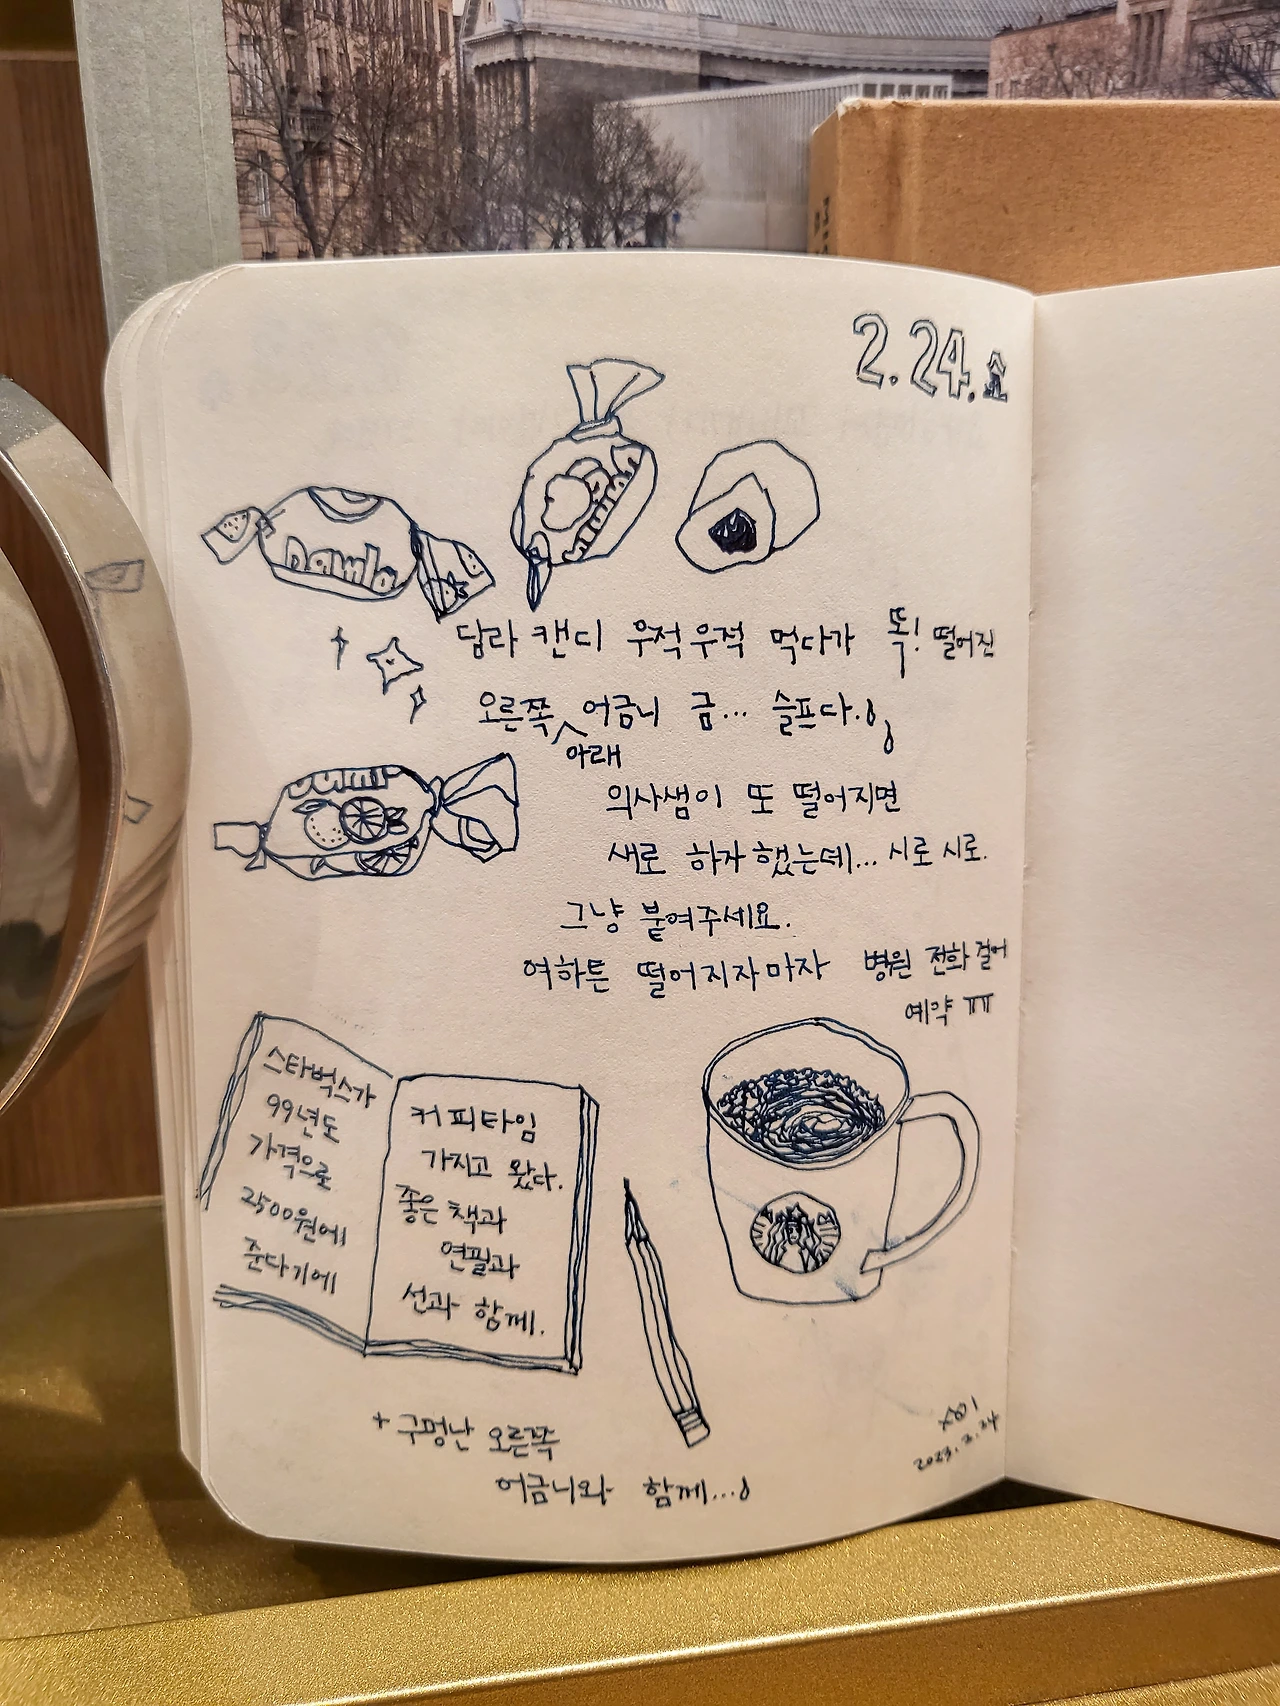 2.24.
Damla
담라 캔디 우적우적 먹다가 똑! 떨어진
오른쪽 아래 어금니 금... 슬프다.
의사샘이 또 떨어지면
새로 하자 했는데... 시로 시로.
그냥 붙여주세요.
여하튼 떨어지자마자 병원 전화 걸어
예약 ㅠㅠ
스타벅스가
99년도
가격으로
2500원에
준다기에
커피타임
가지고 왔다.
좋은 책과
연필과
선과 함께.
+ 구멍난 오른쪽
어금니와 함께...
2023.2.24